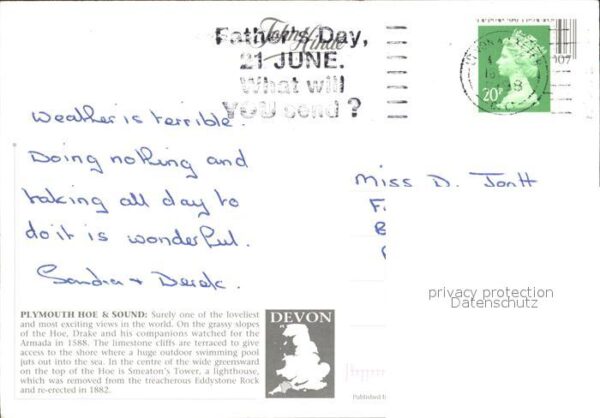 Father's Day,
John Hinde
21 JUNE.
What will
YOU send ?
20P
Weather is terrible.
Doing nothing and
taking all day to
do it is wonderful.
Sandra + Derek.
Miss D. Jontt
F
B
privacy protection
Datenschutz
PLYMOUTH HOE & SOUND: Surely one of the loveliest
and most exciting views in the world. On the grassy slopes
of the Hoe, Drake and his companions watched for the
Armada in 1588. The limestone cliffs are terraced to give
access to the shore where a huge outdoor swimming pool
juts out into the sea. In the centre of the wide greensward
on the top of the Hoe is Smeaton's Tower, a lighthouse,
which was removed from the treacherous Eddystone Rock
and re-erected in 1882.
DEVON
Published